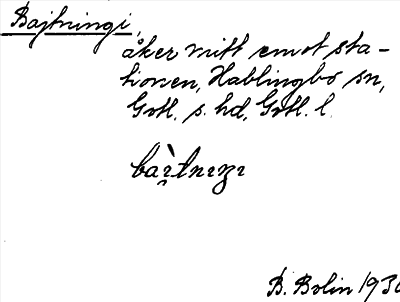 Bajtningi,
åker mitt emot sta-
tionen, Hablingbo sn,
Gotl. s. hd, Gotl. l.
B. Bolin 193